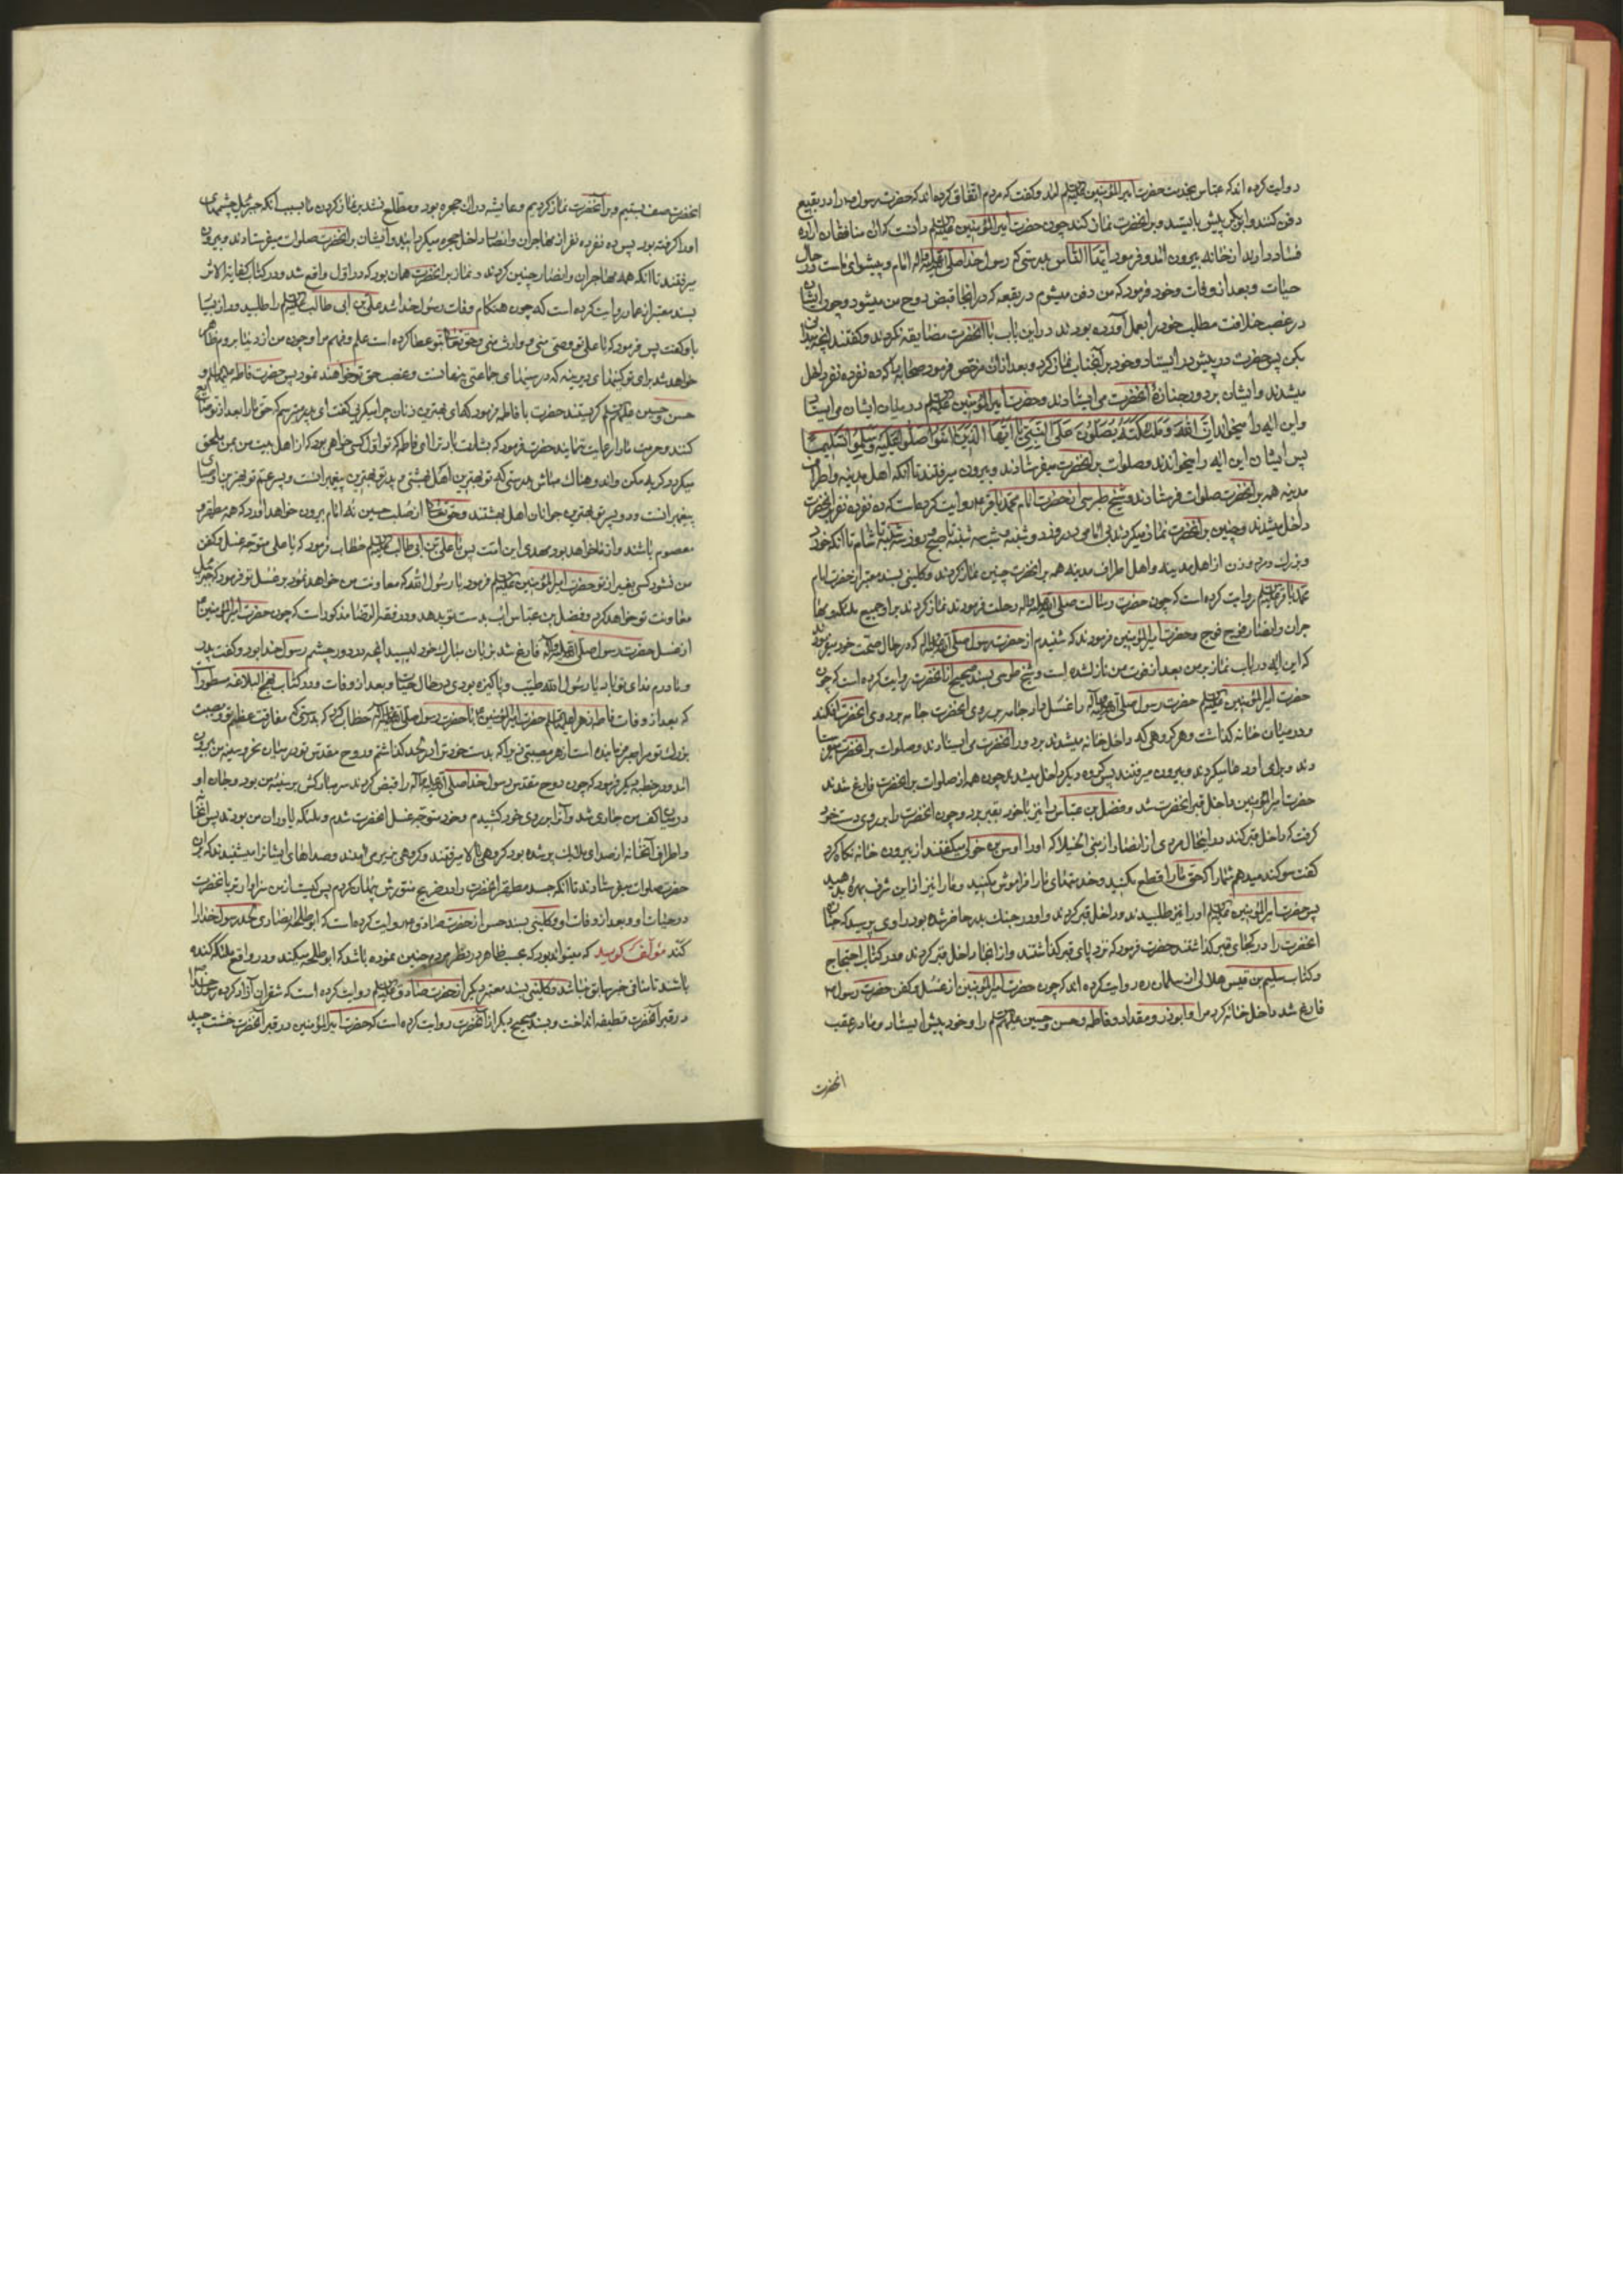 روایت کرده اند که عباس بخدمت حضرت امیر المؤمنین علیه السلم امد و گفت که مردم اتفاق کرده اند که حضرت رسول ص را در بقیع
دفن کنند و ابو بکر پیش بایستد و بر انحضرت نماز کند چون حضرت امیر المؤمنین علیه السلم دانست که ان منافقان اراده
فساد دارند از خانه بیرون امد و فرمود ایها الناس بدرستی که رسول خدا صلی الله علیه واله امام و پیشوای ماست در حال
حیات و بعد از وفات و خود فرمود که من دفن میشوم در بقعه که در انجا قبض روح من میشود و چون ایشان
در غصب خلافت مطلب خود را بعمل آورده بودند در این باب با انحضرت مضایقه نکردند و گفتند انچه میدانی
بکن پس حضرت در پیش در ایستاد و خود بر آنجناب نماز کرد و بعد از ان مرخص فرمود صحابه را که ده نفر ده نفر داخل
میشدند و ایشان بر دور جنازهٔ انحضرت می ایستادند و حضرت امیر المؤمنین علیه السلم در میان ایشان می ایستاد
و این ایه را میخواند ان الله وملائکته یصلون علی النبی یا ایها الذین امنوا صلوا علیه وسلموا تسلیما
پس ایشان این ایه را میخواندند و صلوات بر انحضرت میفرستادند و بیرون میرفتند تا انکه اهل مدینه و اطراف
مدینه همه بر انحضرت صلوات فرستادند و شیخ طبرسی از حضرت امام محمد باقر ع روایت کرده است که ده نفر ده نفر بر انحضرت
داخل میشدند و چنین بر انحضرت نماز میکردند بی امامی در روز دوشنبه و شب سه شنبه تا صبح و روز سه شنبه تا شام تا انکه خورد
و بزرک و مرد و زن از اهل مدینه و اهل اطراف مدینه همه بر انحضرت چنین نماز کردند و کلینی بسند معتبر از حضرت امام
محمد باقر علیه السلم روایت کرده است که چون حضرت رسالت صلی الله علیه واله رحلت فرمودند نماز کردند بر او جمیع ملئکه و مها
جران و انصار فوج فوج و حضرت امیر المؤمنین فرمودند که شنیدم از حضرت رسول صلی الله علیه واله که در حال صحت خود میفرمود
که این ایه در باب نماز بر من بعد از فوت من نازل شده است و شیخ طوسی بسند صحیح از انحضرت روایت کرده است که چون
حضرت امیر المؤمنین علیه السلم حضرت رسول صلی الله علیه واله را غسل داد جامه بر روی انحضرت افکند
و در میان خانه گذاشت و هر گروهی که داخل خانه میشدند بر دور انحضرت می ایستادند و صلوات بر انحضرت میفرستا
دند و برای او دعا میکردند و بیرون میرفتند پس گروه دیگر داخل میشدند چون همه از صلوات بر انحضرت فارغ شدند
حضرت امیر المؤمنین داخل قبر انحضرت شد و فضل بن عباس را نیز با خود بقبر برد و چون انحضرت را بر روی دست خود
گرفت که داخل قبر کند در اینحال مردی از انصار از بنی الخیلا که او را اوس بن خولی میگفتند از بیرون خانه ندا کرد
گفت سوگند میدهم شما را که حق ما را قطع مکنید و خدمتهای ما را فراموش مکنید و ما را نیز از این شرف بهرهٔ بدهید
پس حضرت امیر المؤمنین علیه السلم او را نیز طلبیدند و داخل قبر کردند و او در جنک بدر حاضر شده بود راوی پرسید که جنازهٔ
انحضرت را در کجای قبر گذاشتند حضرت فرمود که نزد پای قبر گذاشتند و از انجا داخل قبر کردند و در کتاب احتجاج
و کتاب سلیم بن قیس هلالی از سلمان ره روایت کرده اند که چون حضرت امیر المؤمنین از غسل و کفن حضرت رسول ص
فارغ شد داخل خانه کرد مرا و ابوذر و مقداد و فاطمه و حسن و حسین علیهم السلم را و خود پیش ایستاد و ما در عقب
انحضرت
انحضرت صف بستیم و بر آنحضرت نماز کردیم و عایشه در ان حجره بود و مطلع نشد بر نماز کردن ما بسبب انکه جبرئیل چشمهای
او را گرفته بود پس ده نفر ده نفر از مهاجران و انصار داخل حجره میکردانید و ایشان بر انحضرت صلوات میفرستادند و بیرون
میرفتند تا انکه همه مهاجران و انصار چنین کردند و نماز بر انحضرت همان بود که در اول واقع شد و در کتاب کفایة الاثر
بسند معتبر از عمار روایت کرده است که چون هنکام وفات رسول خدا شد علی بن ابی طالب علیه السلم را طلبید و راز بسیا
با و گفت پس فرمود که یا علی تو وصی منی و وارث منی و حق تعالی بتو عطا کرده است علم و فهم مرا و چون من از دنیا بروم ظاهر
خواهد شد برای تو کینهای دیرینه که در سینهای جماعتی پنهانست و غصب حق تو خواهند نمود پس حضرت فاطمه علیها السلم و
حسن و حسین علیهم السلم گریستند حضرت با فاطمه فرمود که ای بهترین زنان چرا میگریی گفت ای پدر میترسم که حق ما را بعد از تو ضایع
کنند و حرمت ما را رعایت ننمایند حضرت فرمود که بشارت باد ترا ای فاطمه که تو اول کسی خواهی بود که از اهل بیت من بمن ملحق
میکردد گریه مکن و اندوهناک مباش بدرستی که تو بهترین اهل بهشتی و پدر تو بهترین پیغمبرانست و پسر عم تو بهترین اوصیای
پیغمبرانست و دو پسر تو بهترین جوانان اهل بهشتند و حق تعالی از صلب حسین نه امام بیرون خواهد آورد که همه مطهر و
معصوم باشند و از ما خواهد بود مهدی این امت پس با علی بن ابی طالب علیه السلم خطاب فرمود که یا علی متوجه غسل و کفن
من نشود کسی بغیر از تو حضرت امیر المؤمنین علیه السلم فرمود یا رسول الله که معاونت من خواهد نمود بر غسل تو فرمود که جبرئیل
معاونت تو خواهد کرد و فضل بن عباس اب بدست تو بدهد و در فقه الرضا مذکور است که چون حضرت امیر المؤمنین ع
از غسل حضرت رسول صلی الله علیه واله فارغ شد بزبان مبارک خود لیسید انچه در دور چشم رسول خدا بود و گفت پدر
و مادرم فدای تو باد یا رسول الله طیب و پاکیزه بودی در حال حیات و بعد از وفات و در کتاب نهج البلاغه مسطور است
که بعد از وفات فاطمه زهرا علیها السلم حضرت امیر المؤمنین ع با حضرت رسول صلی الله علیه واله خطاب کرد که بدرستی که مفارقت عظیم تو و مصیبت
بزرک تو مرا صبر فرماینده است از هر مصیبتی زیرا که بدست خود ترا در لحد گذاشتم و روح مقدس تو در میان نحر و سینه من بیرون
امد و در خطبه دیگر فرمود که چون روح مقدس رسول خدا صلی الله علیه واله را قبض کردند سر مبارکش بر سینه من بود و جان او
در میان کف من جاری شد و آنرا بر روی خود کشیدم و خود متوجه غسل انحضرت شدم و ملئکه یاوران من بودند پس انخانه
و اطراف انخانه از صدای ملائک پر شده بود گروهی بالا میرفتند و گروهی بزیر می امدند و صداهای ایشانرا میشنیدم که بران
حضرت صلوات میفرستادند تا انکه جسد مطهر انحضرت را در ضریح منورش پنهان کردم پس کیست از من سزاوارتر بانحضرت
در حیات او و بعد از وفات او و کلینی بسند حسن از حضرت صادق ع روایت کرده است که ابو طلحه انصاری لحد رسول خدا را
کند مؤلف گوید که میتواند بود که بحسب ظاهر در نظر مردم چنین نموده باشد که ابو طلحه میکند و در واقع ملئکه کنده
باشند تا منافی خبر سابق نباشد و کلینی بسند معتبر دیگر از حضرت صادق علیه السلم روایت کرده است که شقران آزاد کرده رسول خدا
در قبر آنحضرت قطیفه انداخت و بسند صحیح دیگر از آنحضرت روایت کرده است که حضرت امیر المؤمنین در قبر آنحضرت خشت چید